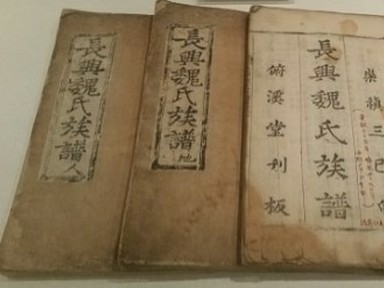 長興魏氏族譜人
長興魏氏族譜地
崇禎三己
長興魏氏族譜
俯溪堂刊板